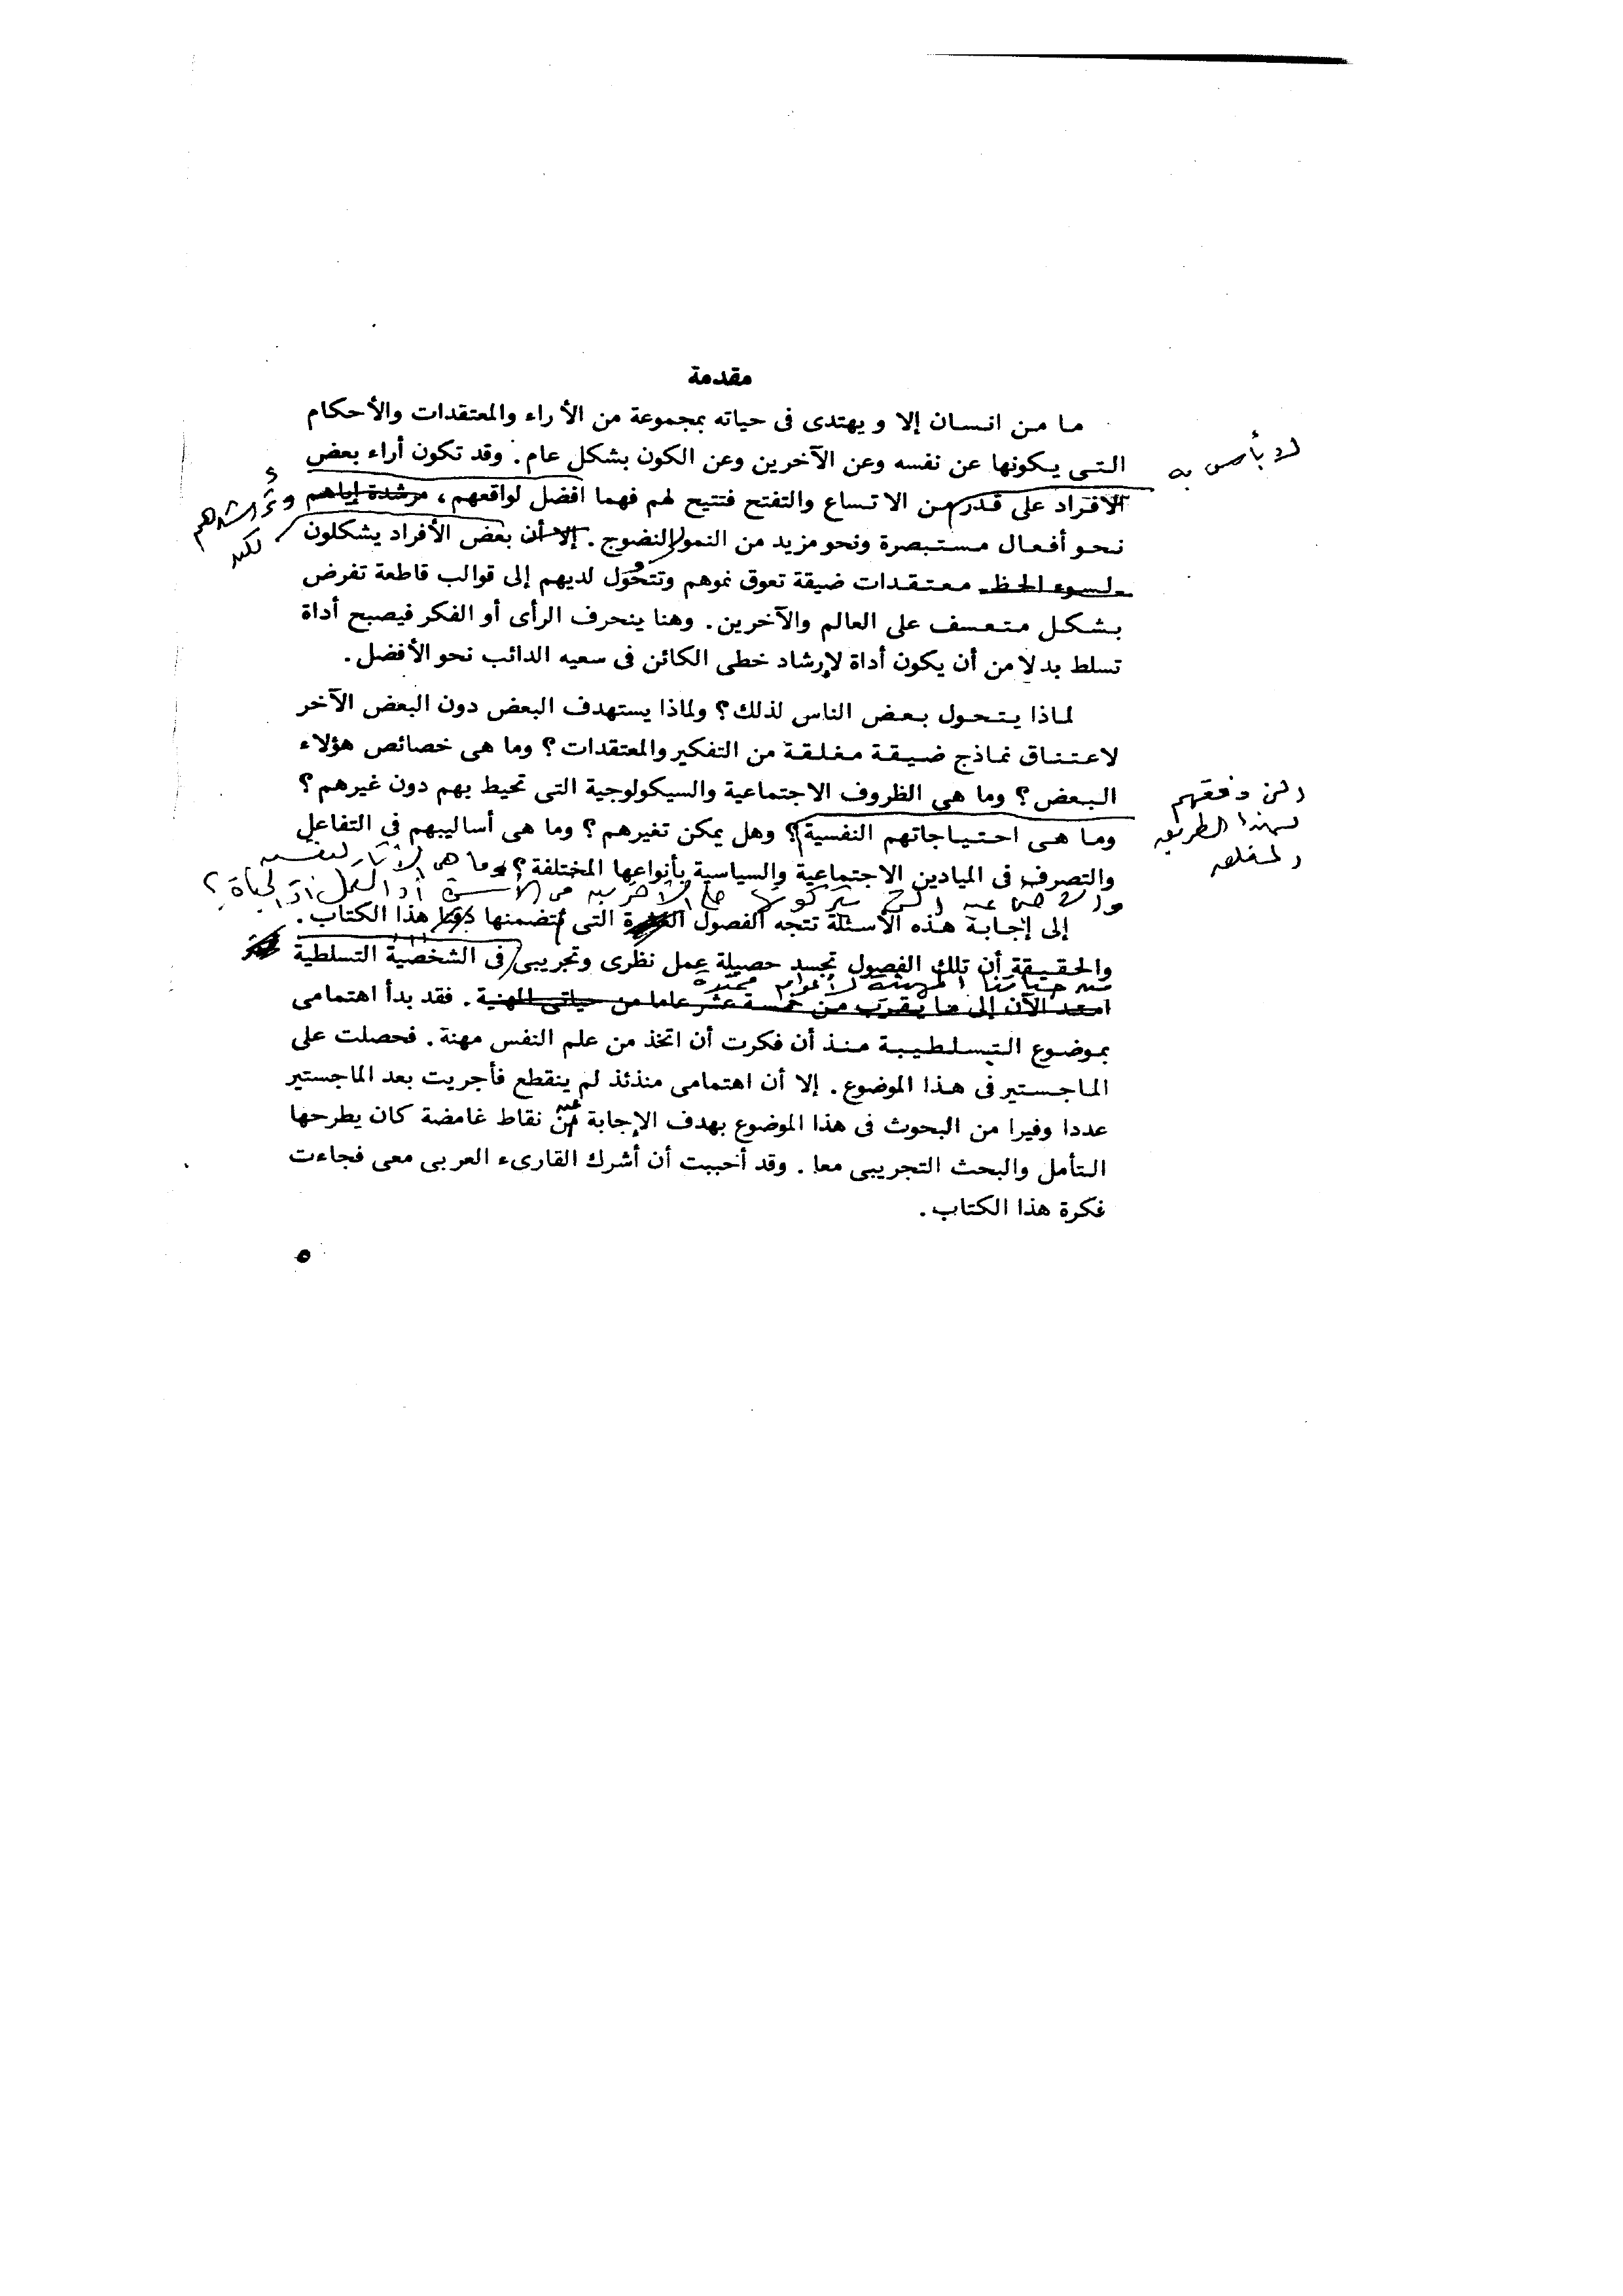 مقدمة
ما من انسان إلا و يهتدى فى حياته بمجموعة من الأراء والمعتقدات والأحكام
التى يكونها عن نفسه وعن الآخرين وعن الكون بشكل عام. وقد تكون أراء بعض
لا بأس به
الافراد على قدر من الا تساع والتفتح فتتيح لهم فهما افضل لواقعهم، مرشدة إياهم
وترشدهم
نحو أفعال مستبصرة ونحو مزيد من النمو والنضوج. إلا أن بعض الأفراد يشكلون
لكن
لسوء الحظ معتقدات ضيقة تعوق نموهم وتتحول لديهم إلى قوالب قاطعة تفرض
بشكل متعسف على العالم والآخرين. وهنا ينحرف الرأى أو الفكر فيصبح أداة
تسلط بدلا من أن يكون أداة لإرشاد خطى الكائن فى سعيه الدائب نحو الأفضل.
لماذا يتحول بعض الناس لذلك؟ ولماذا يستهدف البعض دون البعض الآخر
لاعتناق نماذج ضيقة مغلقة من التفكير والمعتقدات؟ وما هى خصائص هؤلاء
البعض؟ وما هى الظروف الاجتماعية والسيكولوجية التى تحيط بهم دون غيرهم؟
دفعتهم
لهذا الطريق
المغلق
وما هى احتياجاتهم النفسية؟ وهل يمكن تغيرهم؟ وما هى أساليبهم في التفاعل
والتصرف فى الميادين الاجتماعية والسياسية بأنواعها المختلفة؟ وما هى الآثار النفسية
والاجتماعية التى يتركونها على الآخرين فى الأسرة أو العمل أو الحياة؟
إلى إجابة هذه الأسئلة تتجه الفصول التى تتضمنها هذا الكتاب.
والحقيقة أن تلك الفصول تجسد حصيلة عمل نظرى وتجريبى فى الشخصية التسلطية
من حياتنا المهنية لأعوام ممتدة
امتد الآن إلى ما يقرب من خمسة عشر عاما من حياتى المهنية. فقد بدأ اهتمامى
بموضوع التسلطية منذ أن فكرت أن اتخذ من علم النفس مهنة. فحصلت على
الماجستير فى هذا الموضوع. إلا أن اهتمامى منذئذ لم ينقطع فأجريت بعد الماجستير
عددا وفيرا من البحوث فى هذا الموضوع بهدف الإجابة عن نقاط غامضة كان يطرحها
التأمل والبحث التجريبى معا. وقد أحببت أن أشرك القارىء العربى معى فجاءت
فكرة هذا الكتاب.
٥